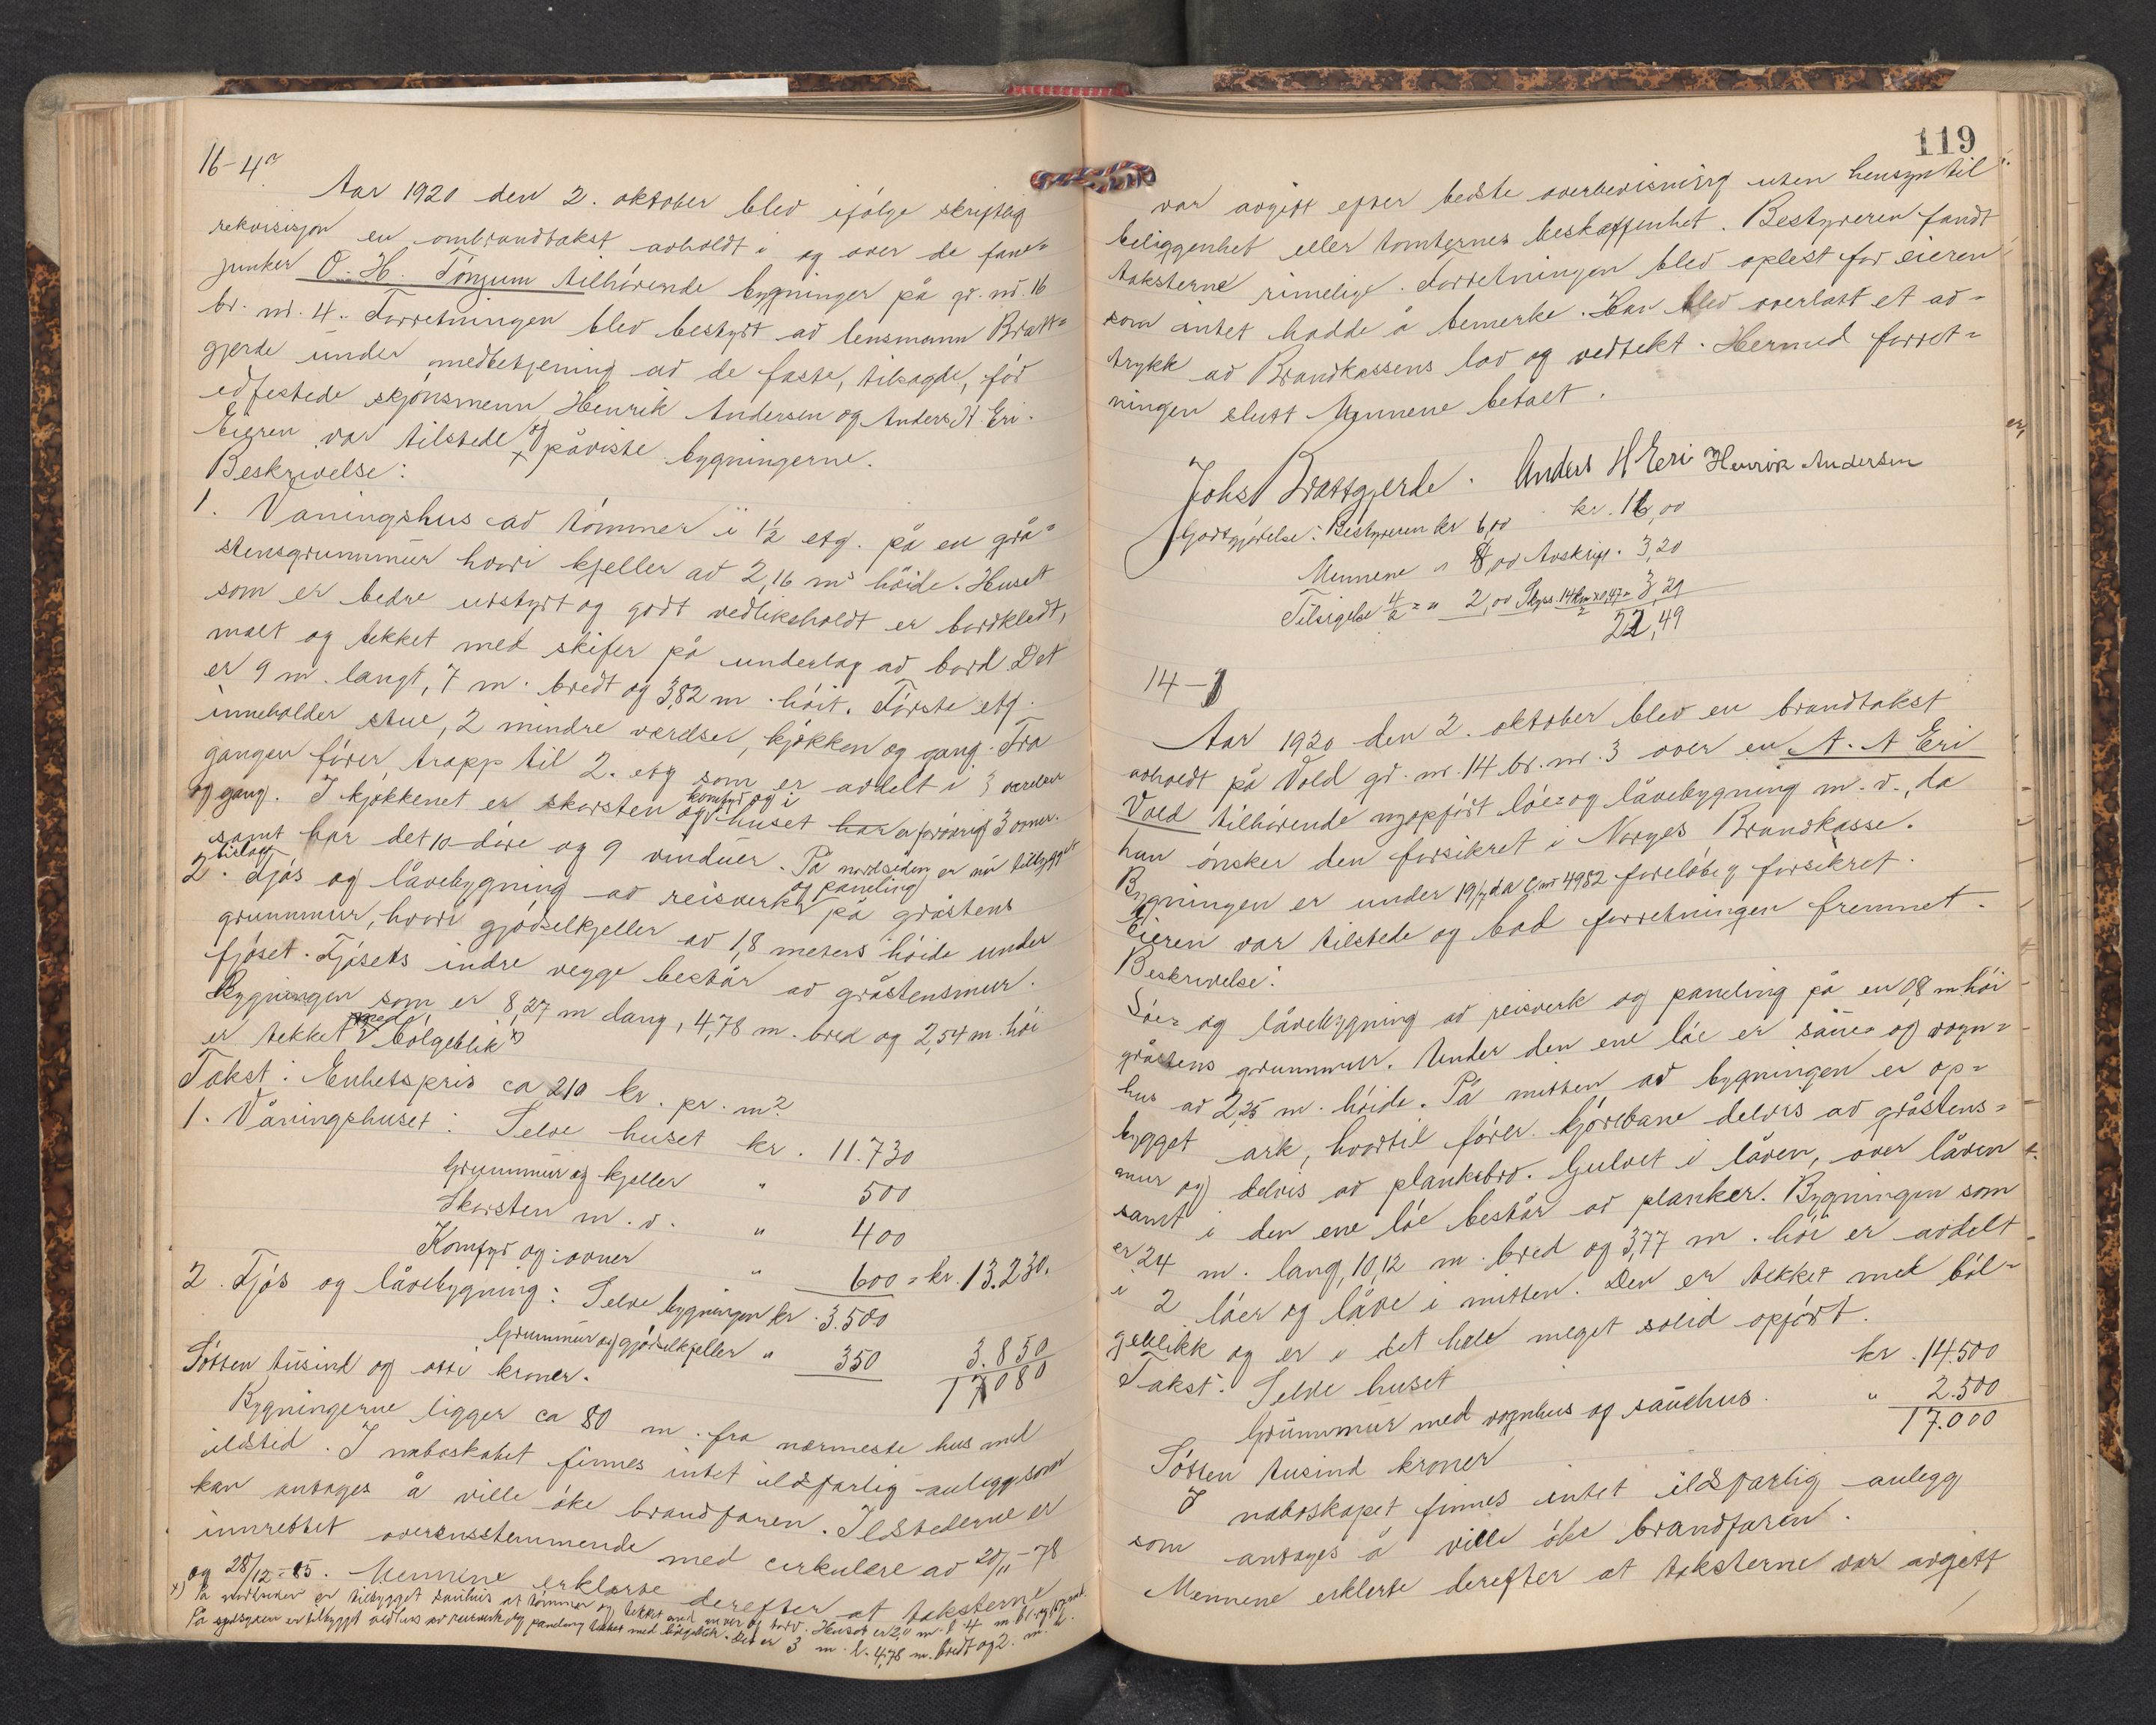 16-4
Aar 1920 den 2. oktober blev ifólge skriftlig
rekvisisjon en ombrandtakst avholdt i og over de fane=
junker O. H. Tónjum tilhórende bygninger på gr. nr. 16
br. nr. 4. Forretningen blev bestyrt av lensmann Bratt=
gjerde under medbetjening av de faste, tilsagte, fór
edfestede skjónsmenn Henrik Andersen og Anders H. Eri.
Eieren var tilstede og påviste bygningerne.
Beskrivelse:
1. Våningshus av tómmer i 1½ etg. på en grå=
stensgrunnmur hvori kjeller av 2,16 m's hóide. Huset
som er bedre utstyrt og godt vedlikeholdt er bordkledt,
malt og tekket med skifer på underlag av bord. Det
er 9 m. langt, 7 m. bredt og 3,82 m. hóit. Fórste etg.
inneholder stue, 2 mindre værelser, kjókken og gang. Fra
gangen fórer trapp til 2. etg som er avdelt i 3 værelser
og gang. I kjókkenet er skorsten komfyr og i
og huset har er foróvrig 3 ovner.
samt har det 10 dóre og 9 vinduer. På nordsiden er nu tilbygget
bislag
2. Fjós og låvebygning av reisverk og paneling på gråstens
grunnmur, hvori gjódselkjeller av 1,8 meters hóide under
fjóset. Fjósets indre vegge består av gråstensmur.
Bygningen som er 8,27 m lang, 4,78 m. bred og 2,54 m. hói
er tekket med bólgeblik x)
Takst: Enhetspris ca 210 kr. pr. m².
1. Våningshuset: Selve huset kr. 11.730
Grunnmur og kjeller " 500
Skorsten m. v. " 400
Komfyr og ovner " 600 = kr. 13.230.
2. Fjós og låvebygning: Selve bygningen kr. 3.500
Grunnmur og gjódselkjeller " 350 3.850
17080
Sótten tusind og otti kroner.
Bygningerne ligger ca 80 m. fra nærmeste hus med
ildsted. I naboskabet finnes intet ildsfarlig anlegg som
kan antages å ville óke brandfaren. Ildstederne er
innrettet overensstemmende med cirkulære av 20/11-78
og 28/12-85. Mennene erklærte derefter at taksterne
x) På nordsiden er tilbygget sauhus av tómmer og tekket med never og torv. Huset er 2,0 m. l. 4 m. br. og
På sydsiden er tilbyggt vedhus av reisverk og paneling tekket med bólgeblik. Det er 3 m. l. 4,78 m. bredt og 2. m. h.
119
var avgitt efter bedste overbevisning uten hensyn til
beliggenhet eller tomternes beskaffenhet. Bestyreren fandt
taksterne rimelige. Forretningen blev oplest for eieren
som intet hadde å bemerke. Han blev overlatt et av=
trykk av Brandkassens lov og vedtekt. Hermed forret=
ningen slutt Mennene betalt.
Johs Brattgjerde. Anders H Eri Henrik Andersen
Godtgjórelse: Bestyreren kr 6,00 kr. 16,00
Mennene " 8,00 Avskrift. 3,20
Tilsigelse 4/2 = " 2,00 Skyss. 14 km x 0,47 = 3,29
22,49
14-3
Aar 1920 den 2. oktober blev en brandtakst
avholdt på Vold gr. nr. 14 br. nr. 3 over en A. A Eri
Vold tilhórende nyopfórt lóe= og låvebygning m. v., da
han ónsker den forsikret i Norges Brandkasse.
Bygningen er under 19/7 d. a. nr 4982 forelóbig forsikret.
Eieren var tilstede og bad forretningen fremmet.
Beskrivelse:
Lóe= og låvebygning av reisverk og paneling på en 0,8 m hói
gråstens grunnmur. Under den ene lóe er saue= og vogn=
hus av 2,25 m. hóide. På mitten av bygningen er op=
bygget ark, hvortil fórer kjórebane delvis av gråstens=
mur og delvis av planksbro. Gulvet i låven, over låven
samt i den ene lóe består av planker. Bygningen som
er 24 m. lang, 10,12 m. bred og 3,77 m. hói er avdelt
i 2 lóer og låve i mitten. Den er tekket med ból=
geblikk og er i det hele meget solid opfórt.
Takst: Selve huset kr. 14.500
Grunnmur med vognhus og sauehus. " 2.500
17.000
Sótten tusind kroner
I naboskapet finnes intet ildsfarlig anlegg
som antages å ville óke brandfaren.
Mennene erklerte derefter at taksterne var avgitt